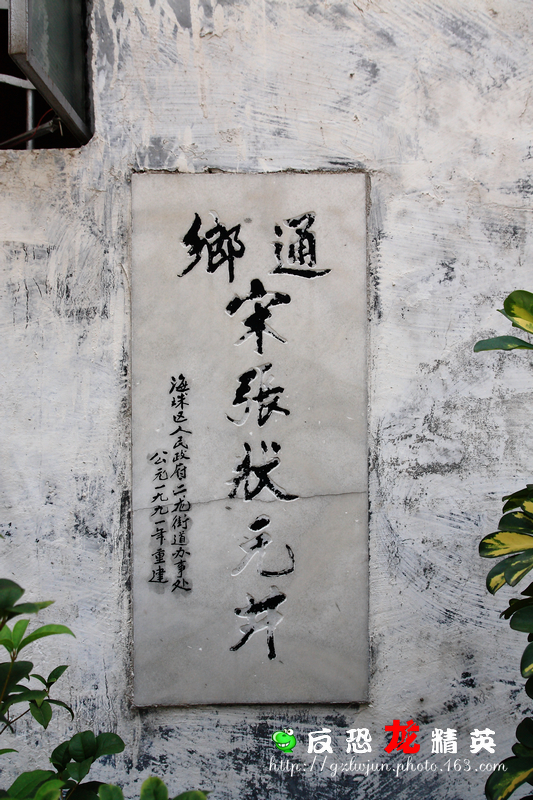 通鄉
宋張狀元井
海珠区人民政府二龙街道办事处
公元一九九一年重建
反恐龙精英
http://gzlwjun.photo.163.com